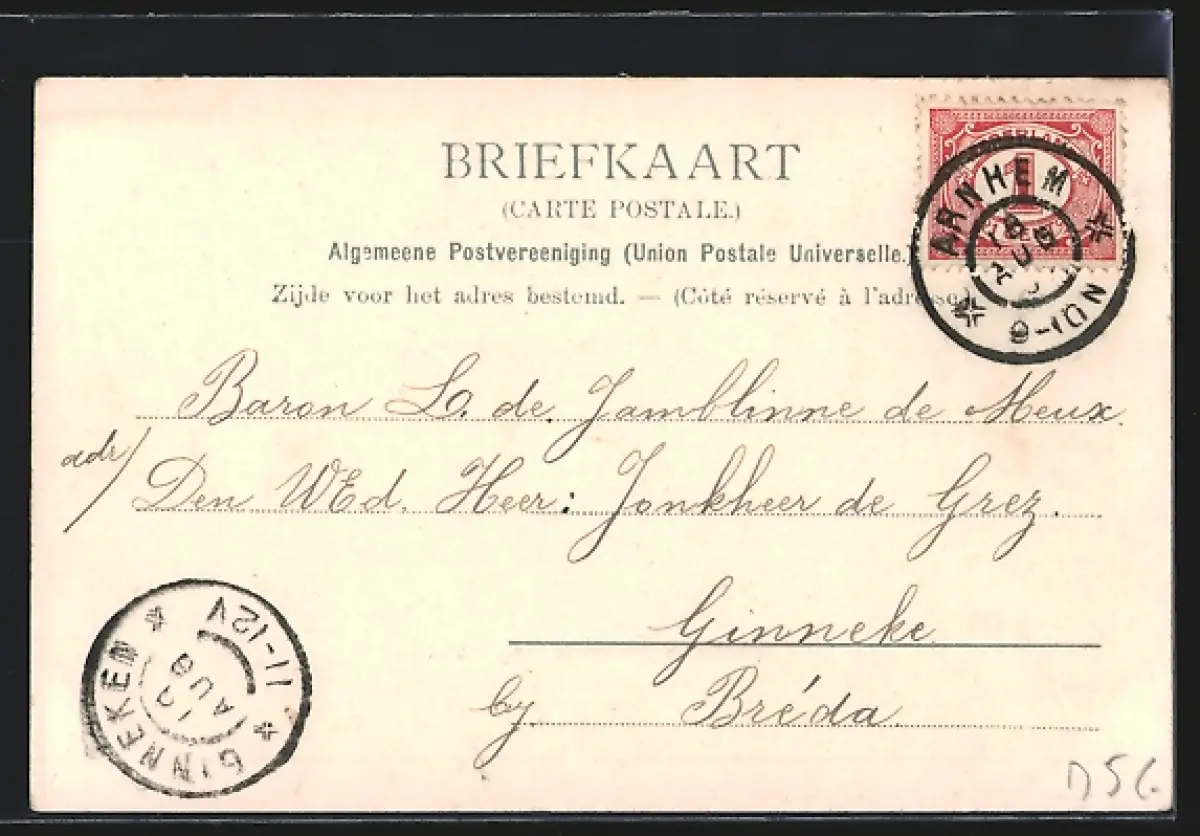 BRIEFKAART
(CARTE POSTALE.)
Algemeene Postvereeniging (Union Postale Universelle.)
Zijde voor het adres bestemd. — (Côté réservé à l'adresse.)
1
ARNHEM
AUG
9-10N
Baron L. de Jamblinne de Meux
adr/ Den WEd. Heer: Jonkheer de Grez.
Ginneke
by Bréda
GINNEKEN
11-12V
AUG